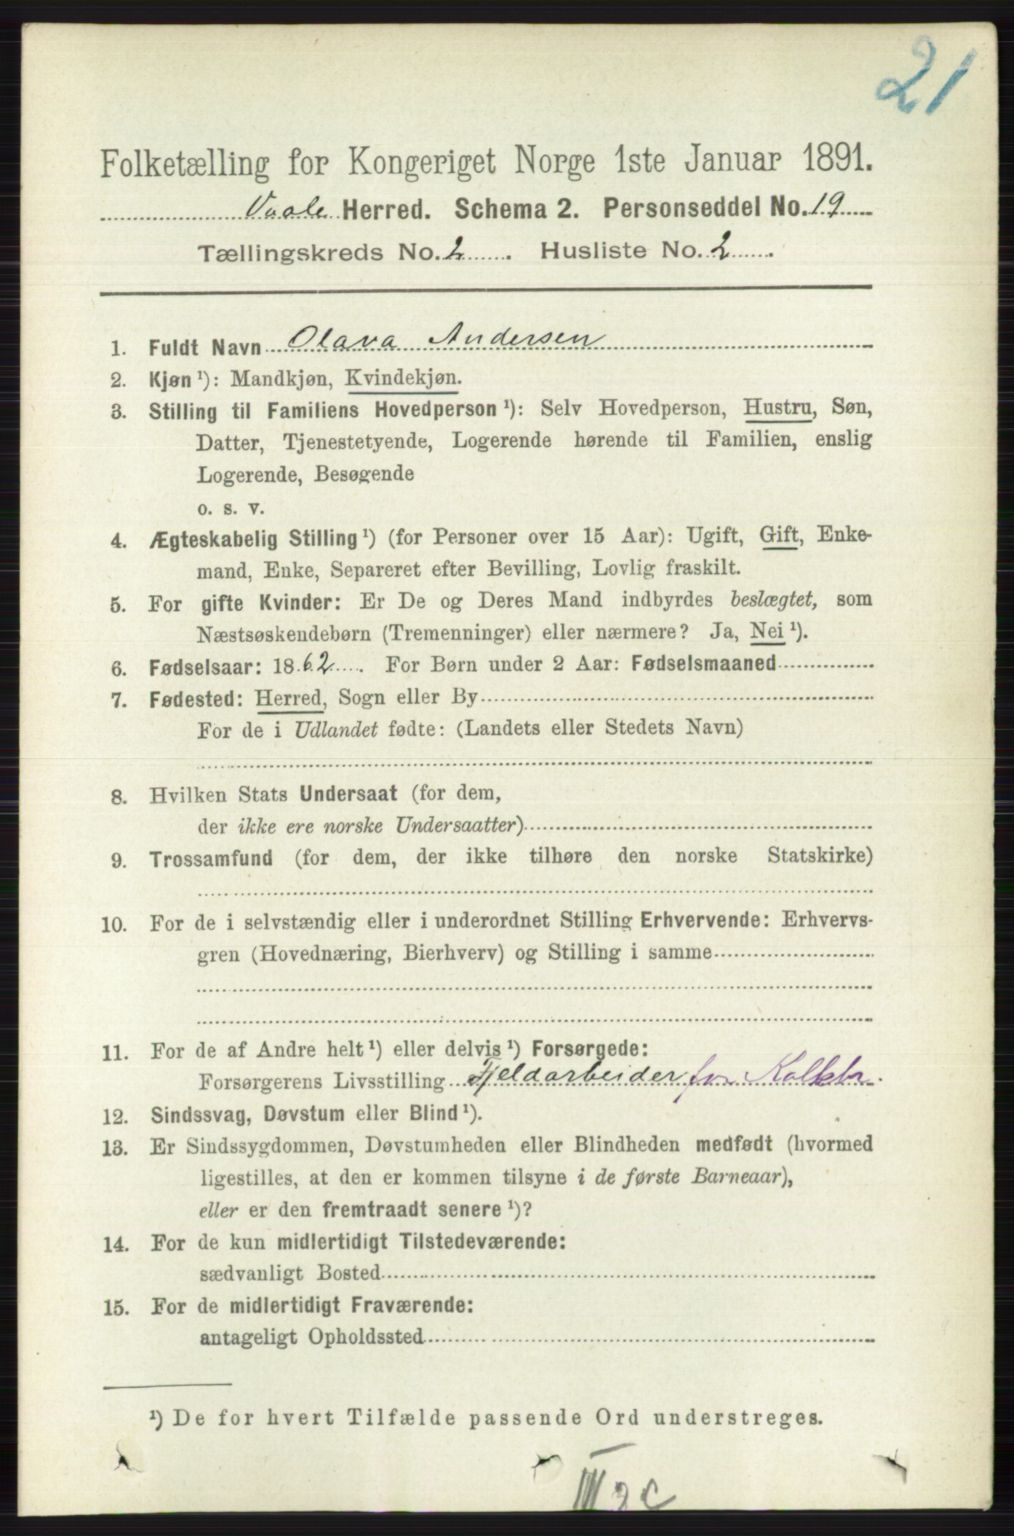 21
Folketælling for Kongeriget Norge 1ste Januar 1891.
Vaale Herred. Schema 2. Personseddel No. 19
Tællingskreds No. 2. Husliste No. 2.
1. Fuldt Navn Olava Andersen
2. Kjøn ¹): Mandkjøn, Kvindekjøn.
3. Stilling til Familiens Hovedperson ¹): Selv Hovedperson, Hustru, Søn,
Datter, Tjenestetyende, Logerende hørende til Familien, enslig
Logerende, Besøgende
o. s. v.
4. Ægteskabelig Stilling ¹) (for Personer over 15 Aar): Ugift, Gift, Enke-
mand, Enke, Separeret efter Bevilling, Lovlig fraskilt.
5. For gifte Kvinder: Er De og Deres Mand indbyrdes beslægtet, som
Næstsøskendebørn (Tremenninger) eller nærmere? Ja, Nei ¹).
6. Fødselsaar: 1862. For Børn under 2 Aar: Fødselsmaaned
7. Fødested: Herred, Sogn eller By
For de i Udlandet fødte: (Landets eller Stedets Navn)
8. Hvilken Stats Undersaat (for dem,
der ikke ere norske Undersaatter)
9. Trossamfund (for dem, der ikke tilhøre den norske Statskirke)
10. For de i selvstændig eller i underordnet Stilling Erhvervende: Erhvervs-
gren (Hovednæring, Bierhverv) og Stilling i samme
11. For de af Andre helt ¹) eller delvis ¹) Forsørgede:
Forsørgerens Livsstilling Fjeldarbeider for
12. Sindssvag, Døvstum eller Blind ¹).
13. Er Sindssygdommen, Døvstumheden eller Blindheden medfødt (hvormed
ligestilles, at den er kommen tilsyne i de første Barneaar),
eller er den fremtraadt senere ¹)?
14. For de kun midlertidigt Tilstedeværende:
sædvanligt Bosted
15. For de midlertidigt Fraværende:
antageligt Opholdssted
¹) De for hvert Tilfælde passende Ord understreges.
III 2c